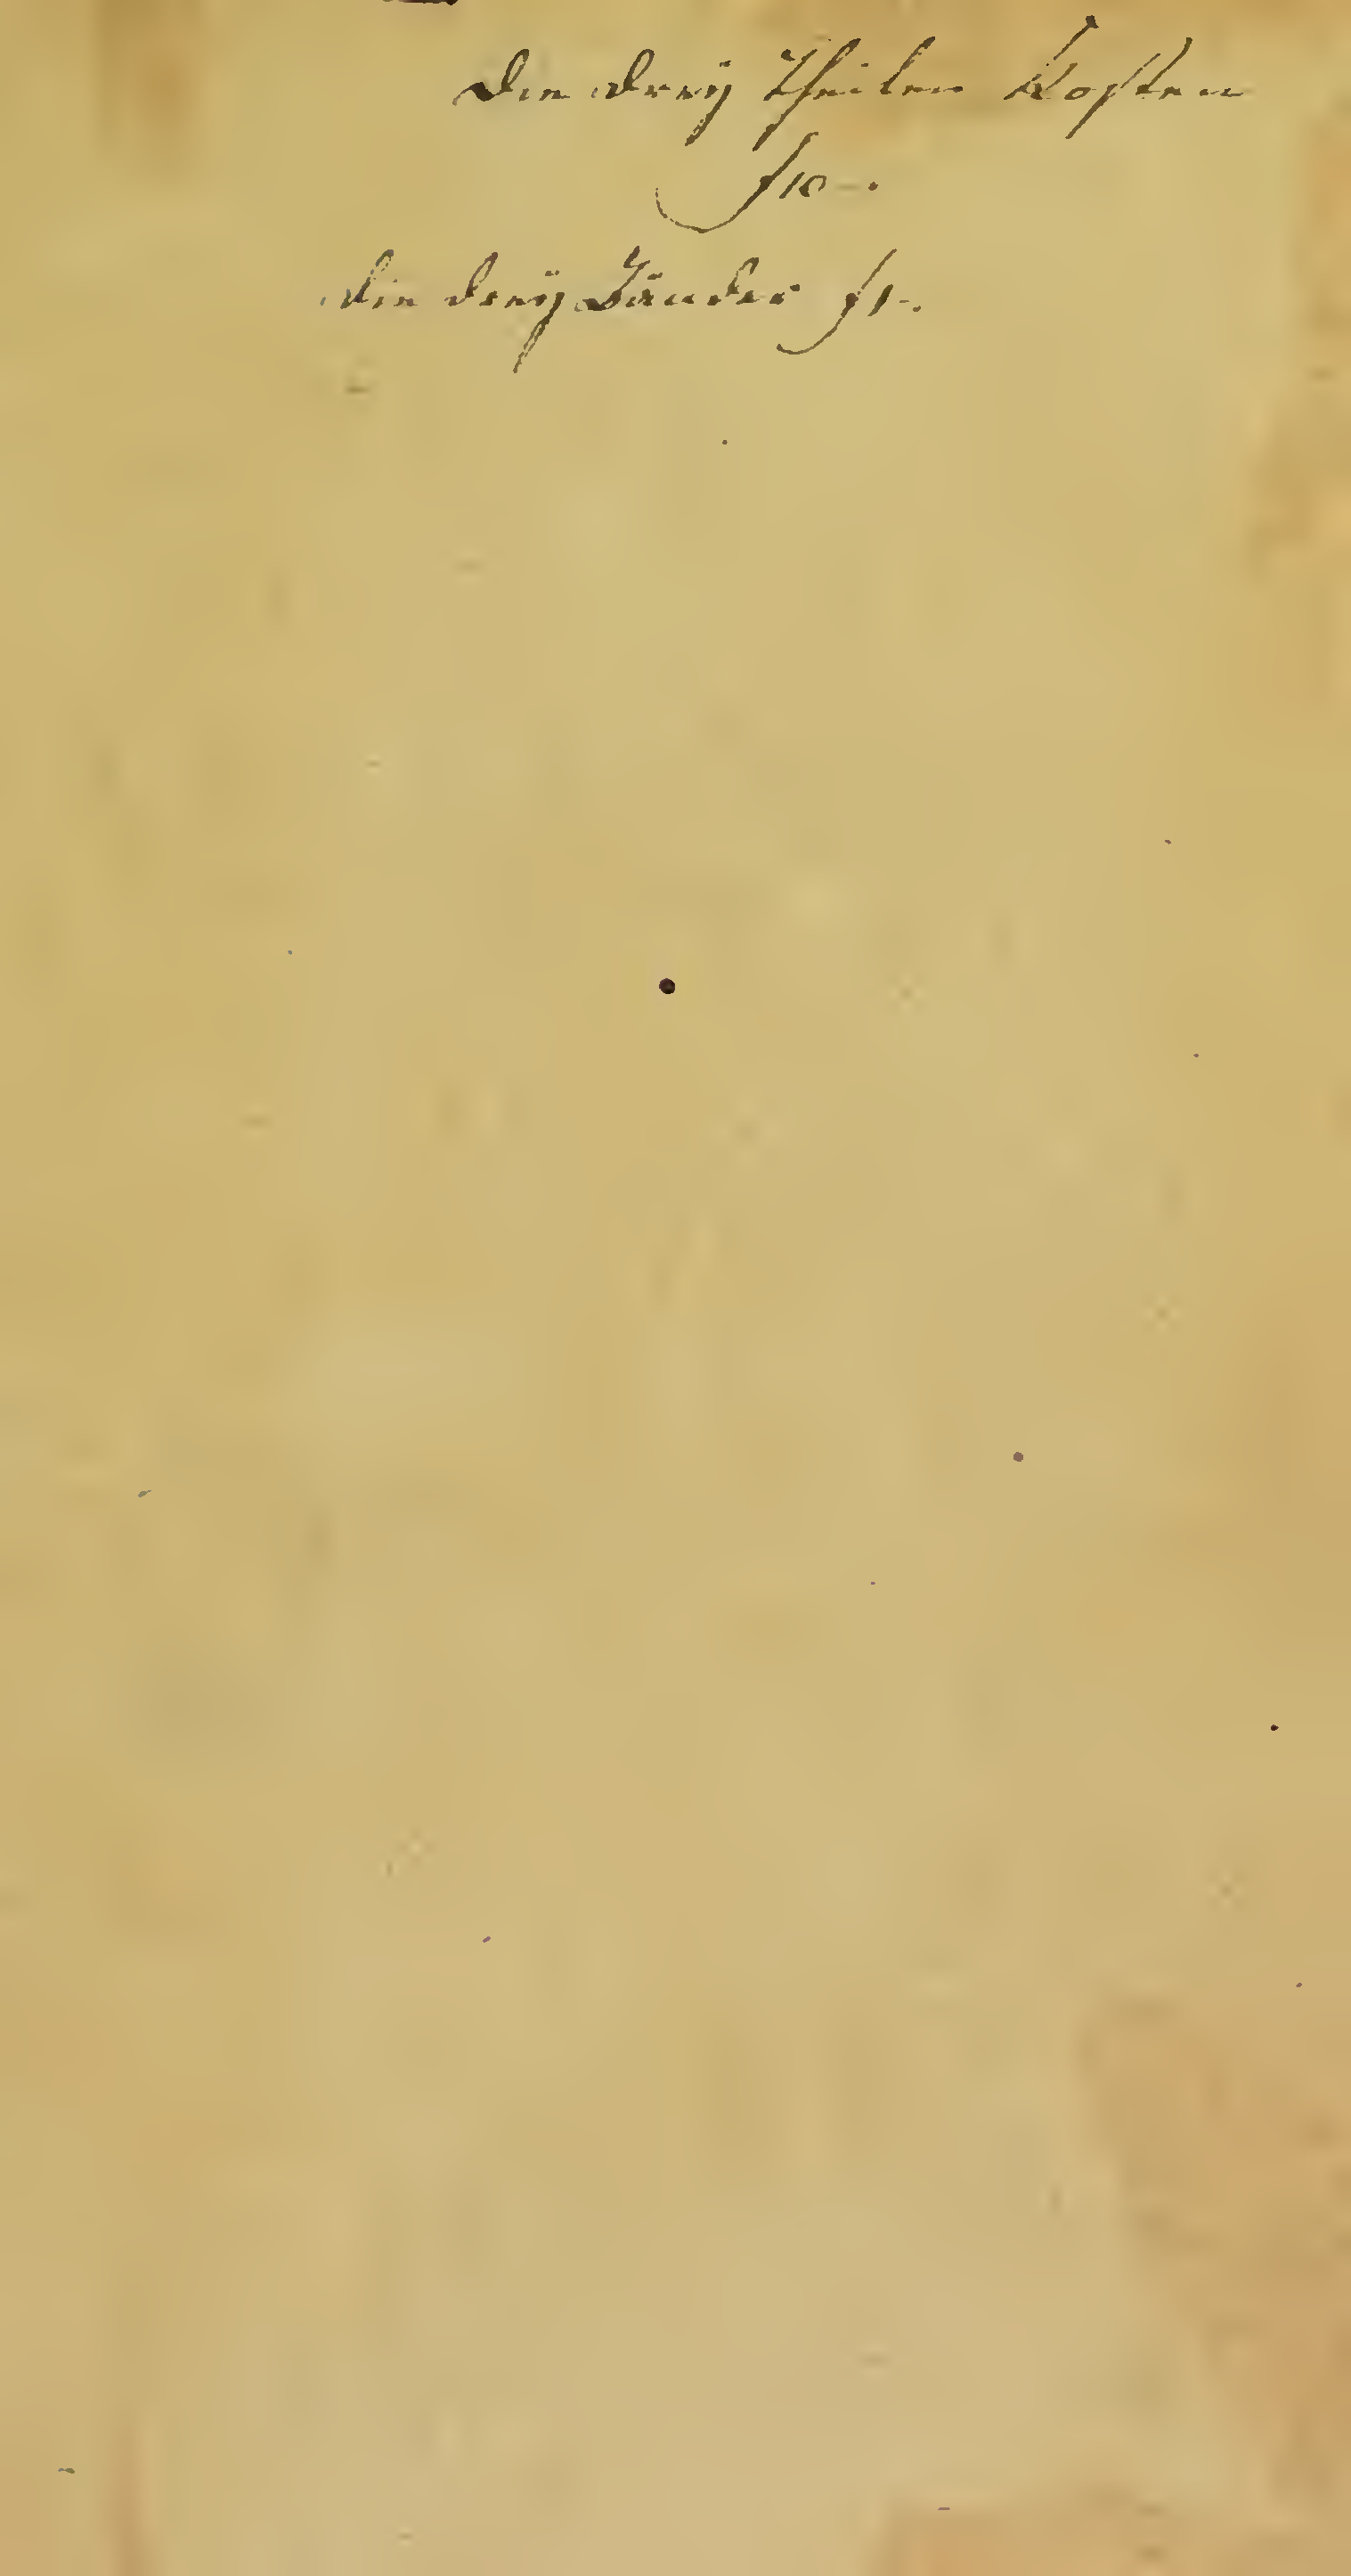 die dreÿ theilen Kosten
f 10 -.
die dreÿ Bänder f 1 -.